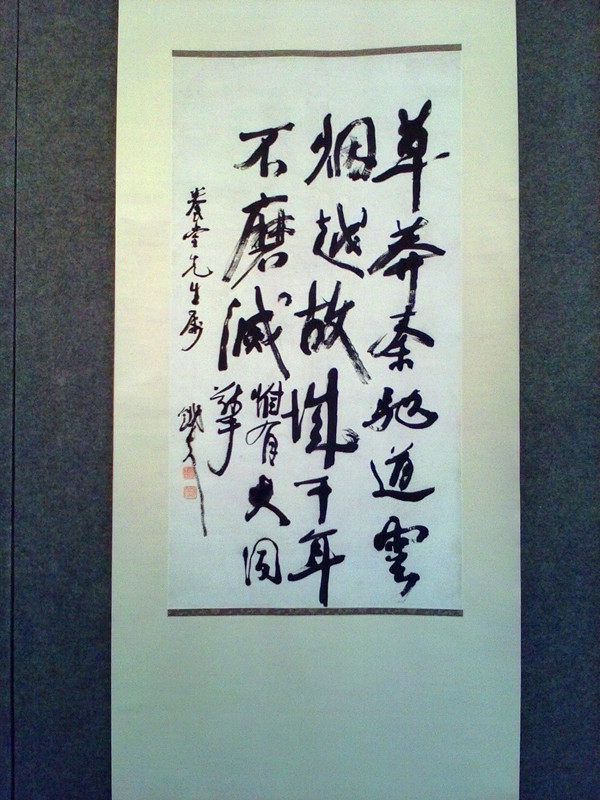 草莽秦馳道雲
烟越故城千年
不磨滅惟有大同
堂先生属